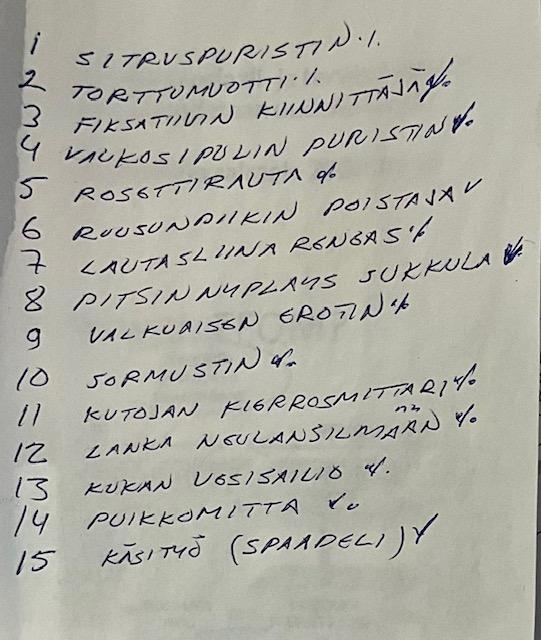 1 SITRUSPURISTIN ·/.
2 TORTTUMUOTTI ·/.
3 FIKSATIIVIN KIINNITTÄJÄ ·/.
4 VALKOSIPULIN PURISTIN ·/.
5 ROSETTIRAUTA ·/.
6 RUUSUNPIIKIN POISTAJA √
7 LAUTASLIINA RENGAS ·/.
8 PITSIN NYPLÄYS SUKKULA √
9 VALKUAISEN EROTIN ·/.
10 SORMUSTIN ·/.
11 KUTOJAN KIERROSMITTARI ·/.
12 LANKA NEULANSILMÄÄN ·/.
13 KUKAN VESISAILIÖ ·/.
14 PUIKKOMITTA ·/.
15 KÄSITYÖ (SPAADELI) √